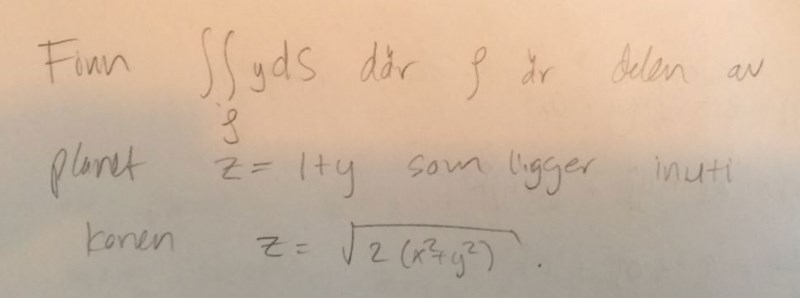 Finn ∬ y dS där S är delen av
S
planet z = 1+y som ligger inuti
konen z = √2(x²+y²).